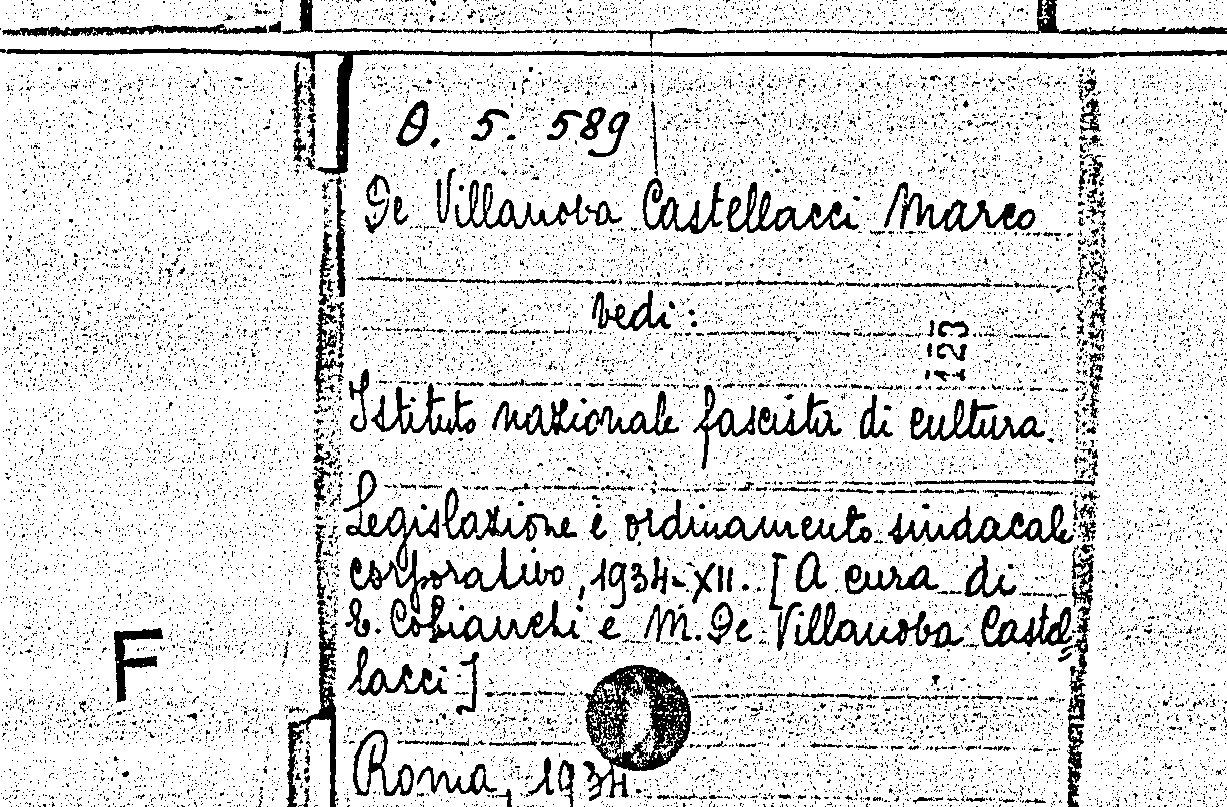 O. 5. 589
De Villanova Castellacci Marco
vedi:
123
Istituto nazionale fascista di cultura.
Legislazione e ordinamento sindacale
corporativo, 1934-XII. [A cura di
E. Cobianchi e M. De Villanova Castel
lacci]
F
Roma, 1934.